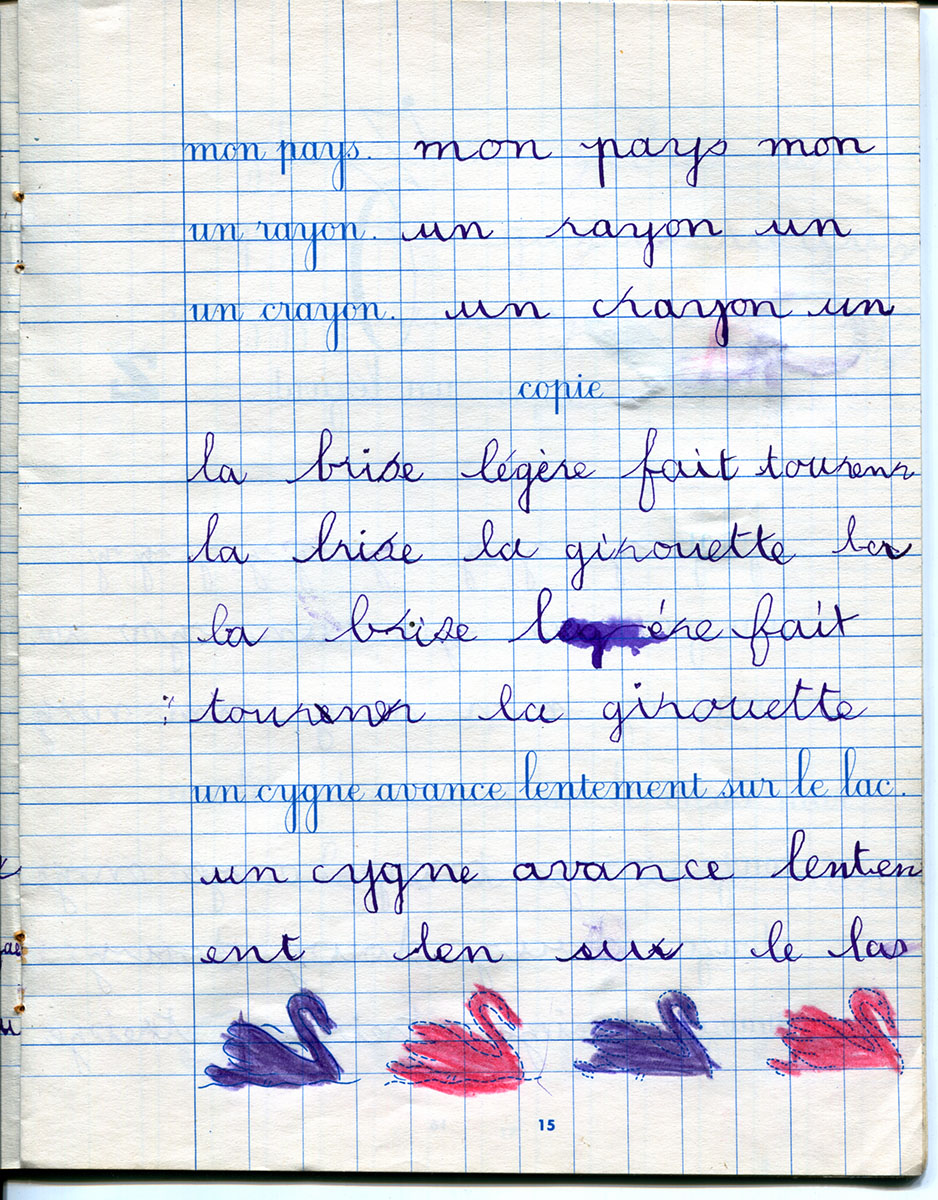 mon pays. mon pays mon
un rayon. un rayon un
un crayon. un crayon un
copie
la brise légère fait tourenr
la brise la girouette la
la brise legére fait
tournenr la girouette
un cygne avance lentement sur le lac.
un cygne avance lentem
ent len sur le las
15